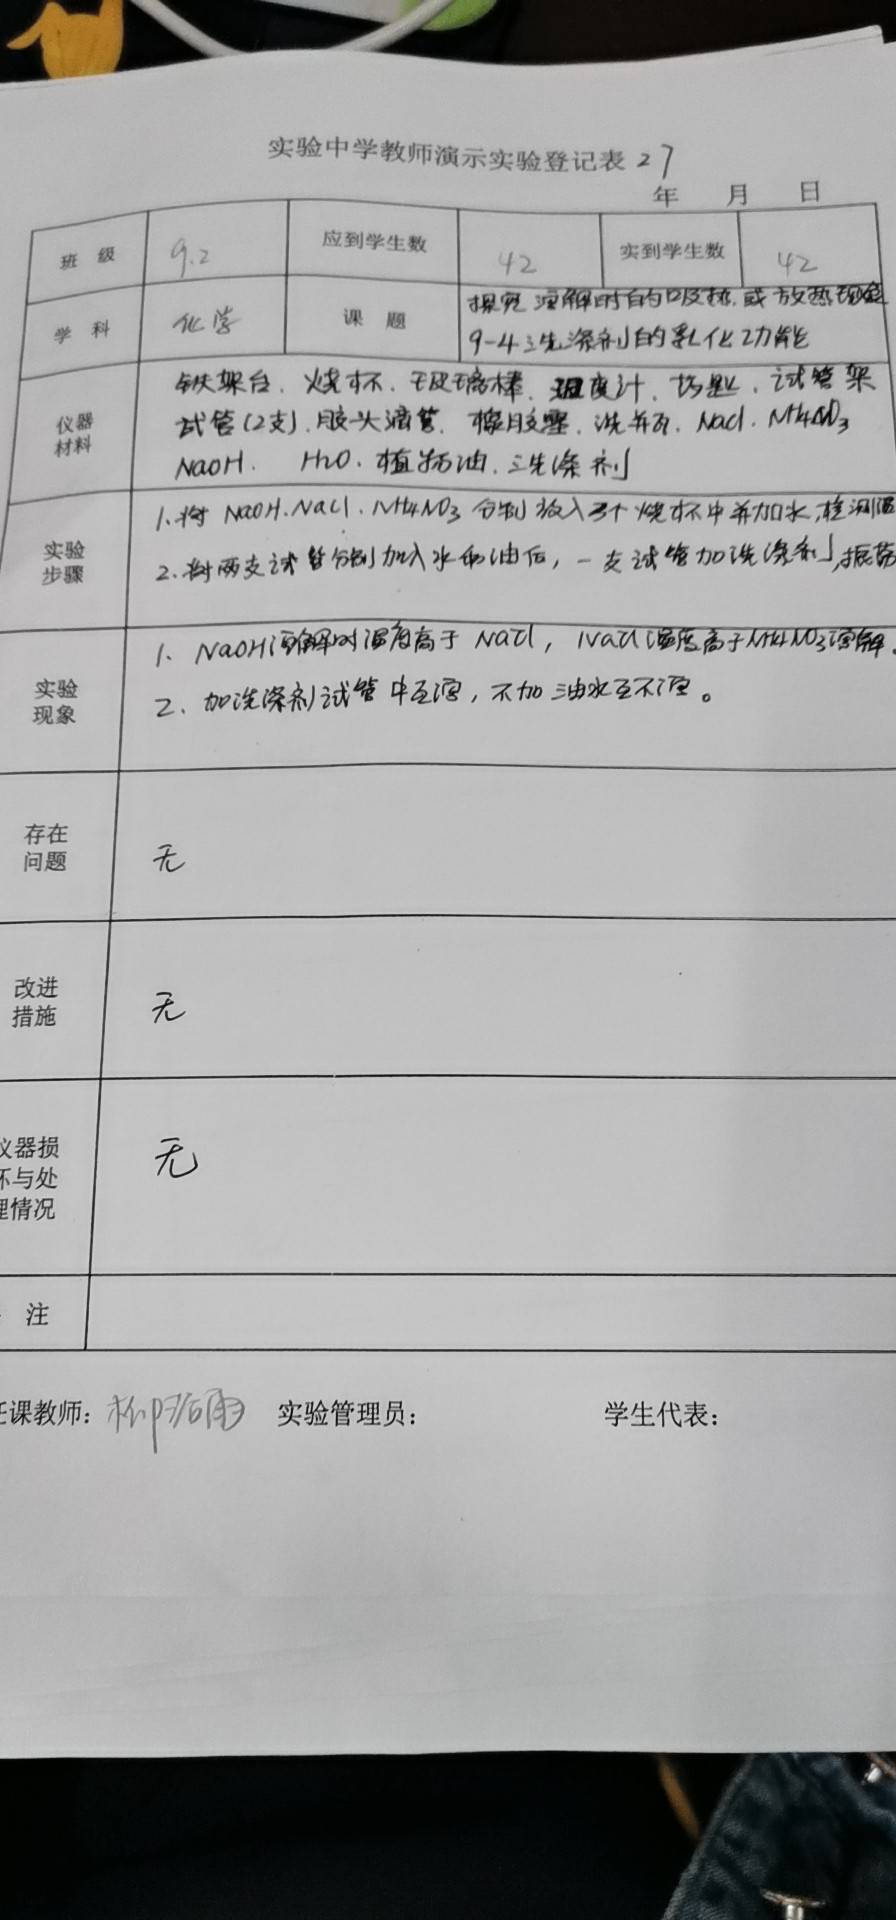 实验中学教师演示实验登记表 27
年 月 日
班 级 9.2 应到学生数 42 实到学生数 42
学 科 化学 课 题 探究溶解时的吸热.或放热现象
9-4 洗涤剂的乳化功能
仪器
材料
铁架台、烧杯、玻璃棒、温度计、药匙、试管架
试管(2支)、胶头滴管、橡胶塞、洗并瓦、NaCl、NH4NO3
NaOH、H2O、植物油、洗涤剂
实验
步骤
1.将NaOH.NaCl.NH4NO3分别放入3个烧杯中并加水,检测温
2.将两支试管分别加入水和油后,一支试管加洗涤剂,振荡
实验
现象
1、NaOH溶解时温度高于NaCl,NaCl温度高于NH4NO3溶解.
2、加洗涤剂试管中互溶,不加油水互不溶。
存在
问题
无
改进
措施
无
仪器损
坏与处
理情况
无
注
任课教师: 实验管理员: 学生代表: